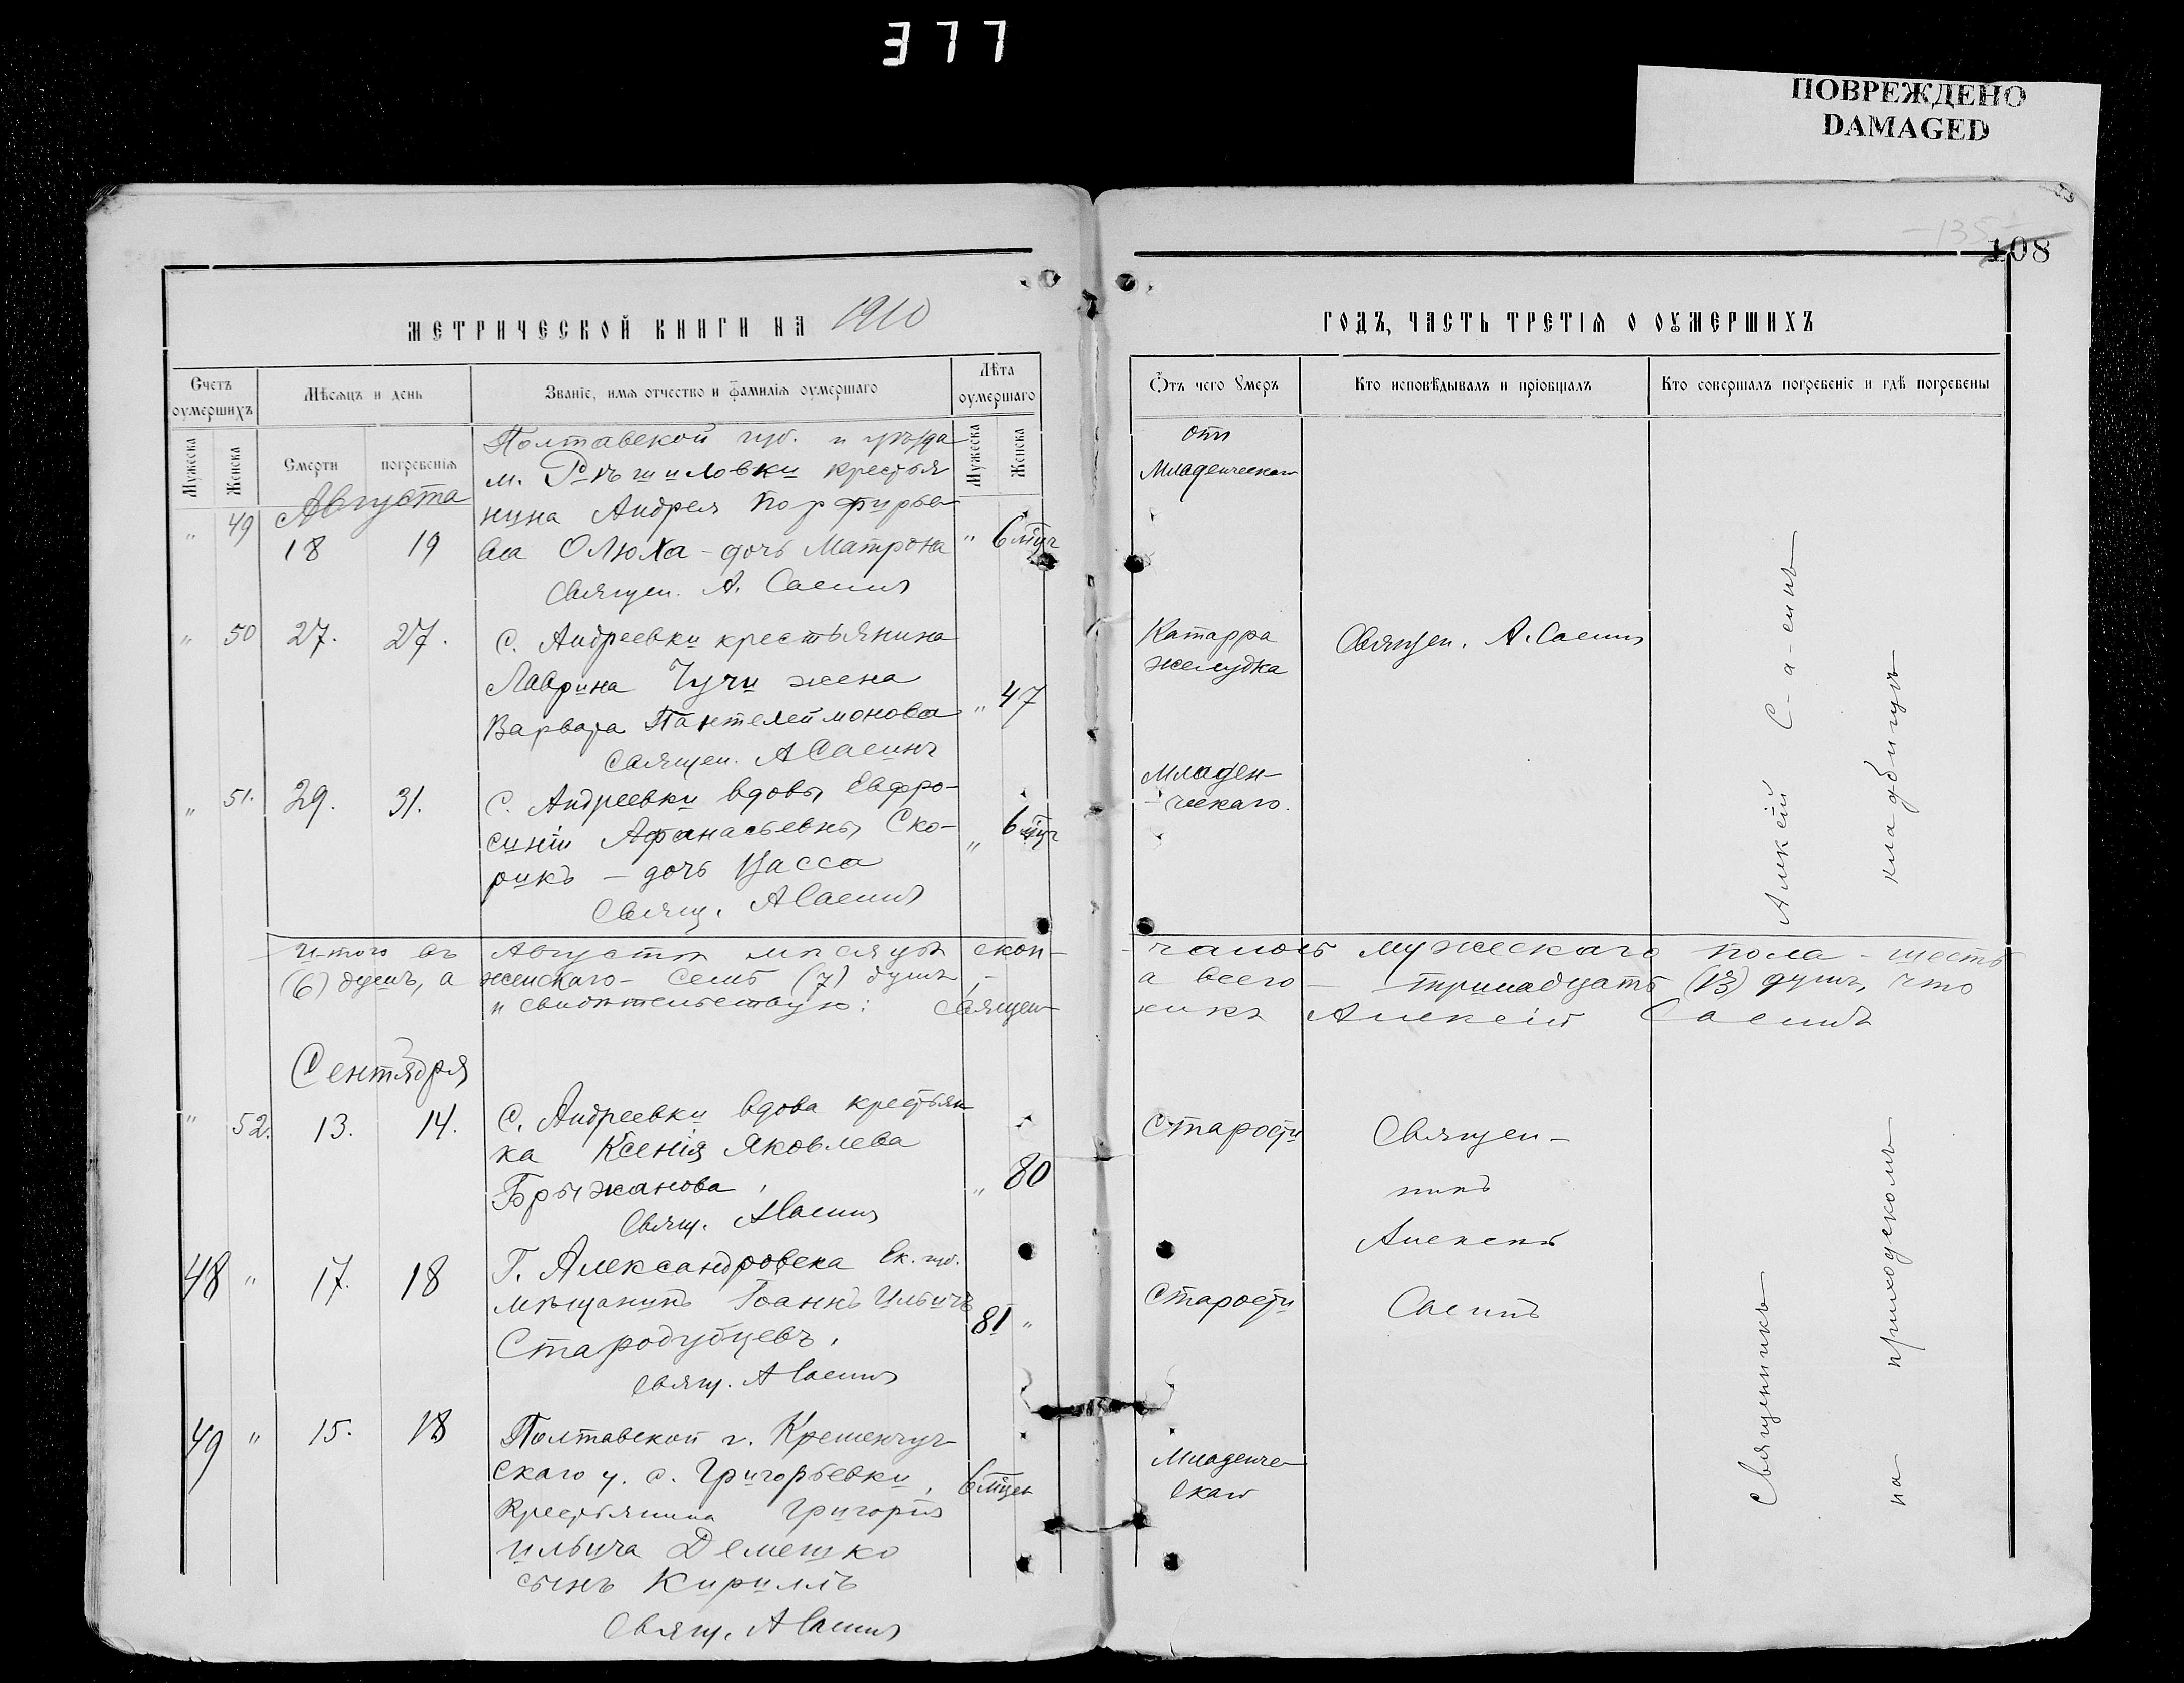 377
ПОВРЕЖДЕНО
DAMAGED
135
108
МЕТРИЧЕСКОЙ КНИГИ НА 1910
ГОДЪ, ЧАСТЬ ТРЕТІЯ О ОУМЕРШИХЪ
Счетъ оумершихъ
Мѣсяцъ и день
Званіе, имя отчество и фамилія оумершаго
Лѣта оумершаго
Отъ чего умеръ
Кто исповѣдывалъ и пріобщалъ
Кто совершалъ погребеніе и гдѣ погребены
Мужеска
Женска
Смерти
погребенія
Мужеска
Женска
Августа
Полтавской губ. и уѣзда
м. Рѣшиловки крестья
нина Андрея Порфирье
ва Олюха - дочь Матрона
Священ. А. Саенко
" 49 18 19 " 6 мѣц
отъ
Младенческаго
" 50 27. 27.
С. Андреевки крестьянина
Лаврина Чучи жена
Варвара Пантелеймонова " 47
Священ. А Саенко
Катарра
желудка
Священ. А. Саенко
" 51. 29. 31.
С. Андреевки вдовы Евфро-
синіи Афанасьевны Ско-
рикъ - дочь Васса
Свящ. А Саенко
" 6 мѣц
Младен-
-ческаго.
Итого въ Августѣ мѣсяцѣ скон-
чалось мужескаго пола - шесть
(6) душъ, а женскаго - семь (7) душъ, -
а всего - тринадцать (13) душъ, что
и свидѣтельствую: Священ-
никъ Алексій Саенко
Сентября
" 52. 13. 14.
С. Андреевки вдова крестьян
ка Ксенія Яковлева
Брыжанова, " 80
Свящ. А Саенко
Старости
Священ-
никъ
Алексѣй
Саенко
48 " 17. 18
Г. Александровска Ек. губ.
мѣщанинъ Іоаннъ Ильичъ
Стародубцевъ, 81 "
Свящ. А Саенко
Старости
49 " 15. 18
Полтавской г. Кременчуг
скаго у. с. Григорьевки, 6 мѣцев
Крестьянина Григорія
Ильича Демешко
сынъ Кириллъ
Свящ. А Саенко
Младенче
скаго
Священникъ Алексій
на приходскомъ кладбищѣ